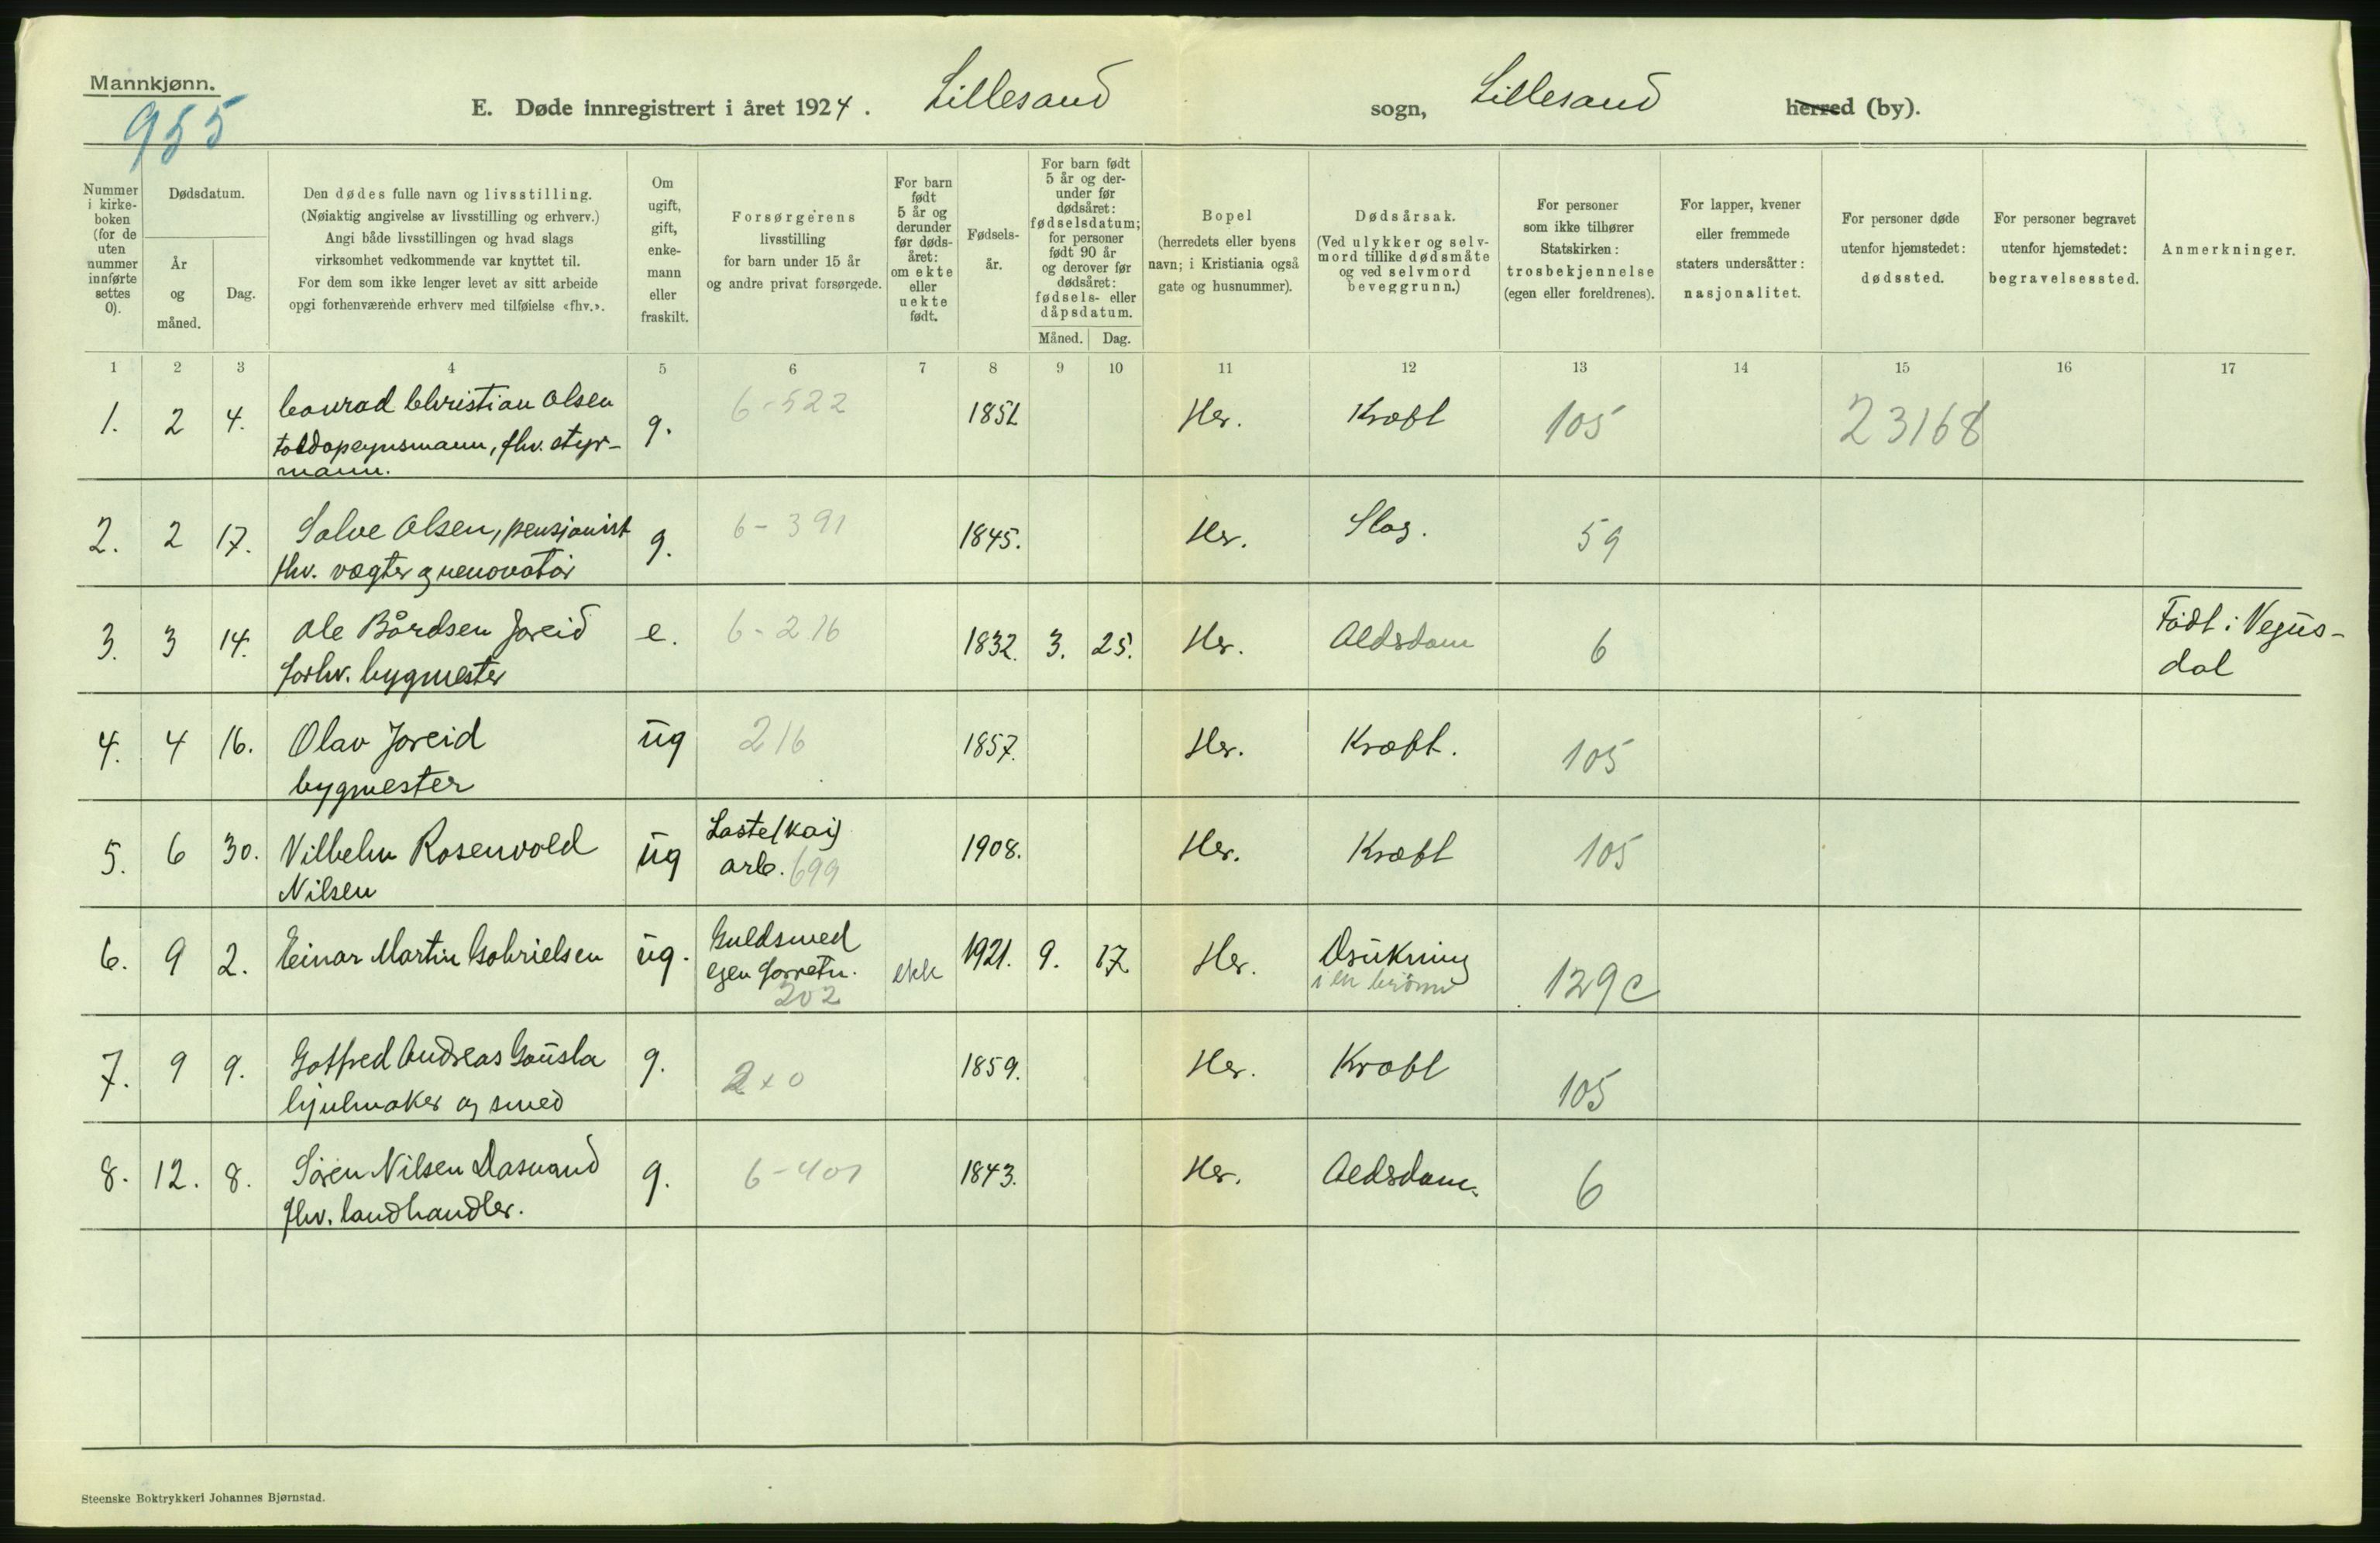 Mannkjønn.
955
E. Døde innregistrert i året 1924. Lillesand sogn, Lillesand herred (by).
Nummer i kirkeboken (for de uten nummer innførte settes 0).
Dødsdatum.
År og måned.
Dag.
Den dødes fulle navn og livsstilling.
(Nøiaktig angivelse av livsstilling og erhverv.)
Angi både livsstillingen og hvad slags
virksomhet vedkommende var knyttet til.
For dem som ikke lenger levet av sitt arbeide
opgi forhenværende erhverv med tilføielse «fhv.».
Om ugift, gift, enkemann eller fraskilt.
Forsørgerens
livsstilling
for barn under 15 år
og andre privat forsørgede.
For barn født 5 år og derunder før dødsåret: om ekte eller uekte født.
Fødselsår.
For barn født 5 år og derunder før dødsåret: fødselsdatum; for personer født 90 år og derover før dødsåret: fødsels- eller dåpsdatum.
Måned. Dag.
Bopel
(herredets eller byens
navn; i Kristiania også
gate og husnummer).
Dødsårsak.
(Ved ulykker og selvmord tillike dødsmåte
og ved selvmord
beveggrunn.)
For personer
som ikke tilhører
Statskirken:
trosbekjennelse
(egen eller foreldrenes).
For lapper, kvener
eller fremmede
staters undersåtter:
nasjonalitet.
For personer døde
utenfor hjemstedet:
dødssted.
For personer begravet
utenfor hjemstedet:
begravelsessted.
Anmerkninger.
1 2 3 4 5 6 7 8 9 10 11 12 13 14 15 16 17
1. 2 4. Conrad Christian Olsen g. 6-522 1851 Her. Kræft 105 23168
toldopsynsmann, fhv. styr-
mann.
2. 2 17. Salve Olsen, pensjonist g. 6-391 1845. Her. Slag. 59
fhv. vægter og renovatör
3. 3 14. Ole Bårdsen Joreid e. 6-216 1832. 3. 25. Her. Aldsdom 6 Födt i Vegus-
forhv. bygmester dal
4. 4 16. Olav Joreid ug 216 1857. Her. Kræft. 105
bygmester
5. 6 30. Vilhelm Rosenvold ug Laste(kai) 1908. Her. Kræft 105
Nilsen arb. 699
6. 9 2. Einar Martin Gabrielsen ug. Guldsmed ekte 1921. 9. 17 Her. Drukning 129c
egen forretn. i en brönn
202
7. 9 9. Gotfred Andreas Gausla g. 2x0 1859. Her. Kræft 105
hjulmaker og smed
8. 12. 8. Sören Nilsen Dasvand g. 6-401 1843. Her. Aldsdom. 6
fhv. landhandler.
Steenske Boktrykkeri Johannes Bjørnstad.